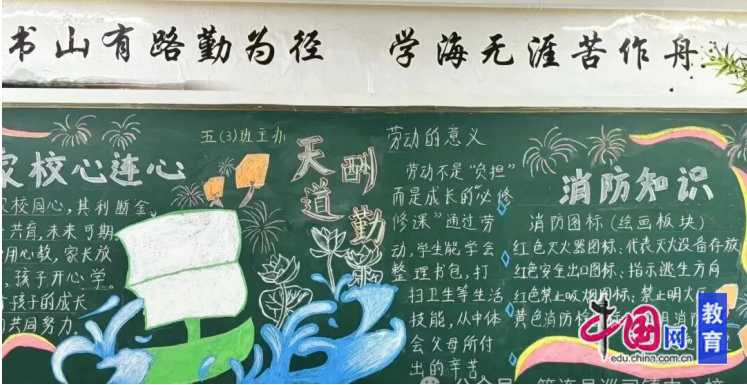 书山有路勤为径 学海无涯苦作舟
五(3)班主办
家校心连心
校同心,其利断金
共育,未来可期
用心教,家长放
,孩子开心学。
孩子的成长
共同努力.
天道酬勤
劳动的意义
劳动不是“负担”
而是成长的“必修
修课”通过劳
动,学生能学会
整理书包,打
扫卫生等生活
技能,从中体
会父母所付
出的辛苦
消防知识
消防图标(绘画板块)
红色灭火器图标:代表灭火设备存放
红色安全出口图标:指示逃生方向
红色禁止吸烟图标:禁止明火
黄色消防栓
中国网
edu.china.com.cn
教育
公众号